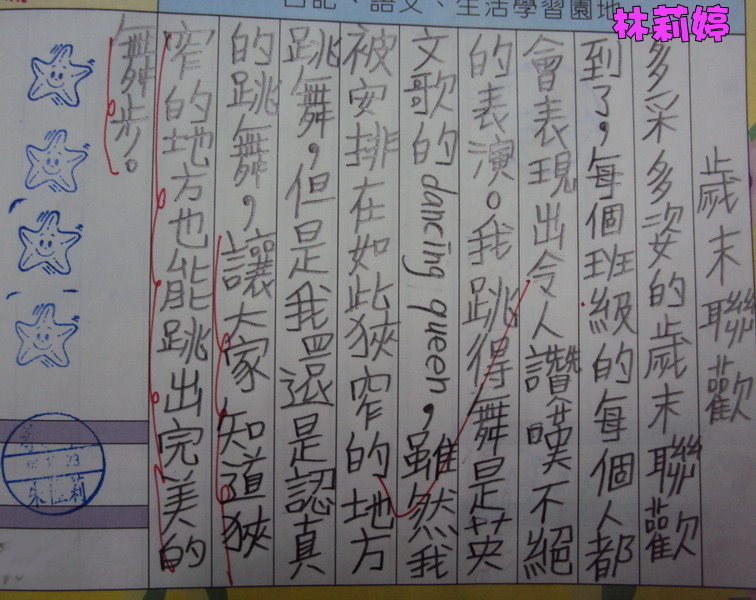 日記、語文、生活學習園地
林莉婷
歲末聯歡
多采多姿的歲末聯歡
到了，每個班級的每個人都
會表現出令人讚嘆不絕
的表演。我跳得舞是英
文歌的dancing queen，雖然我
被安排在如此狹窄的地方
跳舞，但是我還是認真
的跳舞，讓大家知道狹
窄的地方也能跳出完美的
舞步。